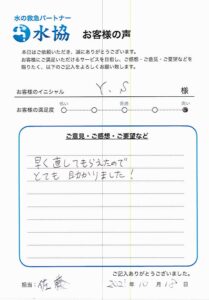 水の救急パートナー
水協 お客様の声
本日はご依頼いただき、誠にありがとうございます。
お客様にご満足いただけるサービスを目指し、ご感想・ご意見・ご要望などを
賜りたく、以下のご記入をよろしくお願い致します。
お客様のイニシャル Y.S 様
低い 普通 高い
お客様の満足度
ご意見・ご感想・ご要望など
早く直してもらえたので
とても助かりました!
ご記入ありがとうございました。
担当: 佐藤 2021年10月18日